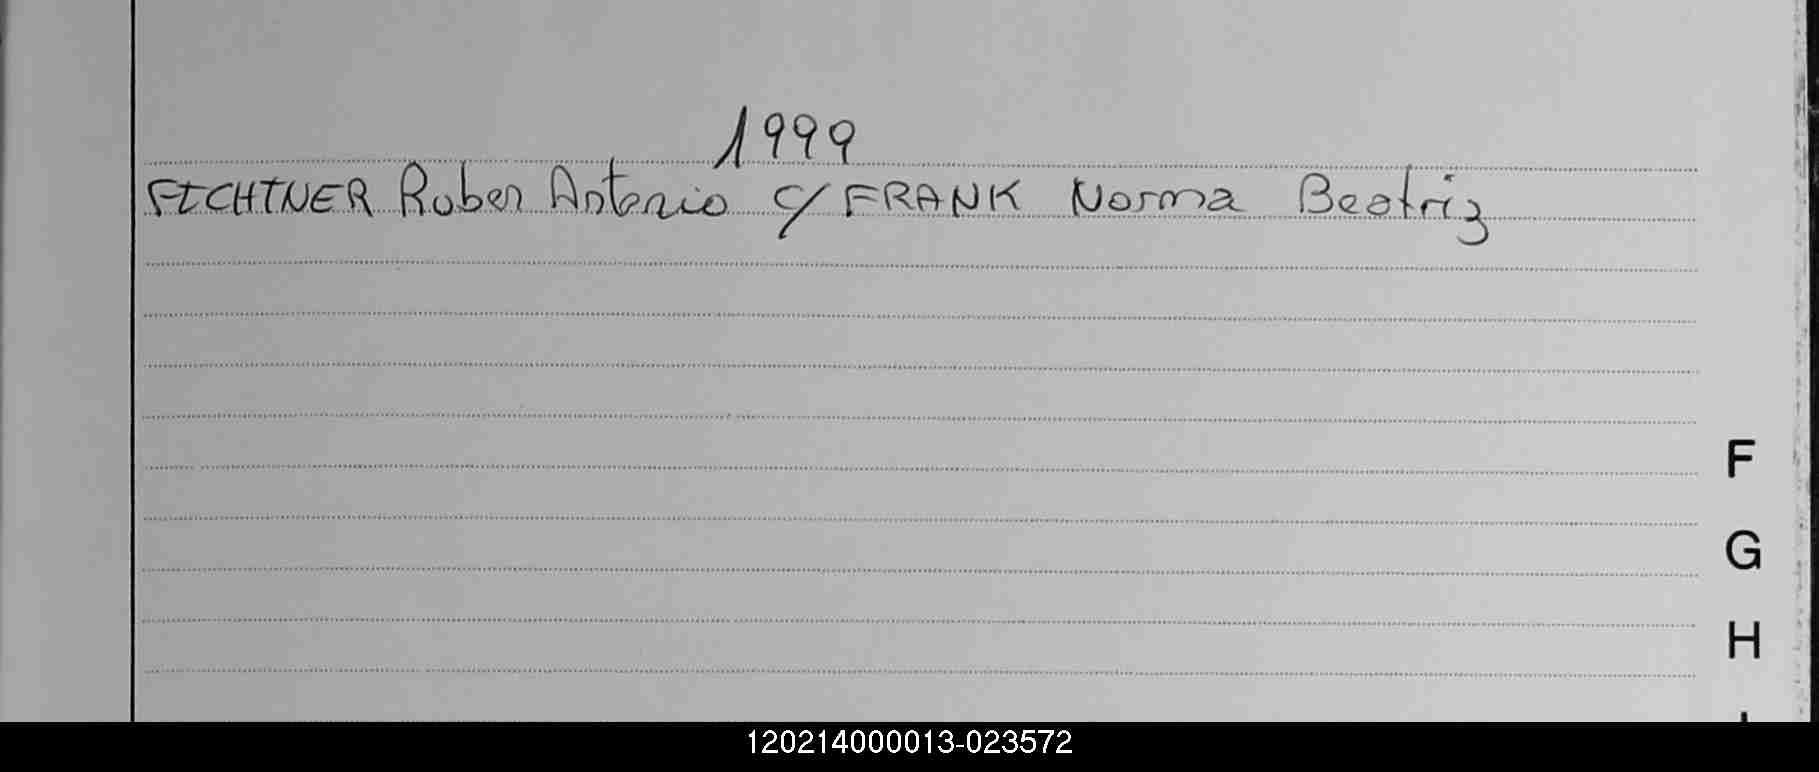 1999
FICHTNER Ruben Antonio c/ FRANK Norma Beatriz
F
G
H
120214000013-023572